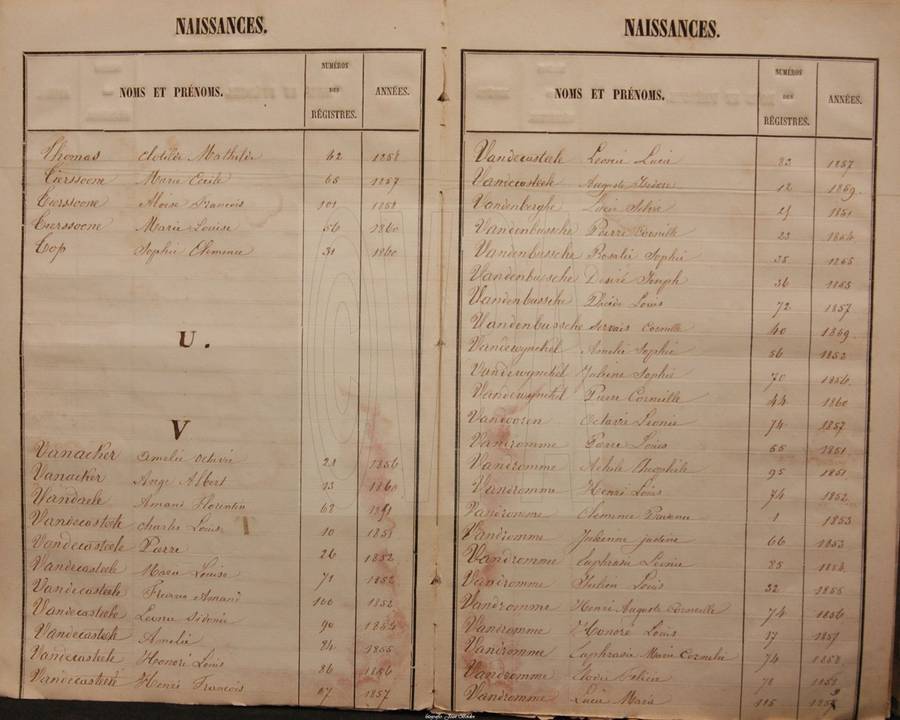 NAISSANCES.
NOMS ET PRÉNOMS. NUMÉROS DES RÉGISTRES. ANNÉES.
Thomas Clotilde Mathilde 62 1858
Tierssoone Marie Cécile 65 1857
Tierssoone Aloise François 101 1858
Tierssoone Marie Louise 56 1860
Top Sophie Clémence 31 1860
U.
V
Vanacker Amélie Octavie 21 1856
Vanacker Ange Albert 13 1860
Vandaele Amand Florentin 62
Vandecasteele Charles Louis 10 1851
Vandecasteele Pierre 26 1852
Vandecasteele Marie Louise 71 1852
Vandecasteele Amand 100 1852
Vandecasteele Léonie Sidonie 90 1854
Vandecasteele Amélie 24 1855
Vandecasteele Honoré Louis 86 1856
Vandecasteele Henri François 67 1857
NAISSANCES.
NOMS ET PRÉNOMS. NUMÉROS DES RÉGISTRES. ANNÉES.
Vandecasteele Léonie Lucie 82 1857
Vandecasteele Auguste Isidore 12 1859.
Vandenberghe 1851
Vandenbussche Pierre Corneille 23 1854
Vandenbussche Rosalie Sophie 35 1855
Vandenbussche Désiré Joseph 36 1855
Vandenbussche Louis 72 1857
Vandenbussche Servais Corneille 40 1859.
Vandewynckel Amélie Sophie 56 1852
Vandewynckel Juliene Sophie 70 1856
Vandewynckel Pierre Corneille 44 1860
Vandooren Octavie Léonie 74 1857
Vandromme Pierre Louis 55 1851
Vandromme Achile Théophile 95 1851
Vandromme Henri Louis 74 1852
Vandromme Clémence 1 1853
Vandromme Julienne Justine 66 1853
Vandromme Euphrasie Léonie 85 1854
Vandromme Julien Louis 32 1855
Vandromme Henri Auguste Corneille 74 1856
Vandromme Honoré Louis 37 1857
Vandromme Euphrasie Marie Cornélie 74 1858
Vandromme Elodie Félicie 78
Vandromme Lucie Marie 115